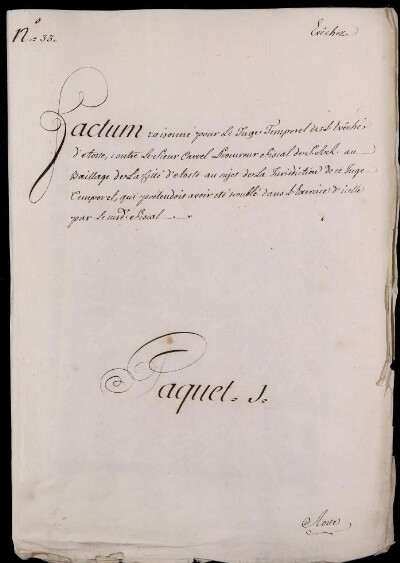 N.º 33. Evêchez
Factum raisonné pour le Juge Temporel de l'Evêché
d'Aoste, contre le Sieur Carrel Procureur Fiscal de S. A. R. au
Baillage de la Cité d'Aoste au sujet de la Jurisdiction de ce Juge
Temporel, qui prétendoit avoir été troublé dans l'Exercice d'icelle
par le md.t Fiscal.
Paquet. J.
Aoste